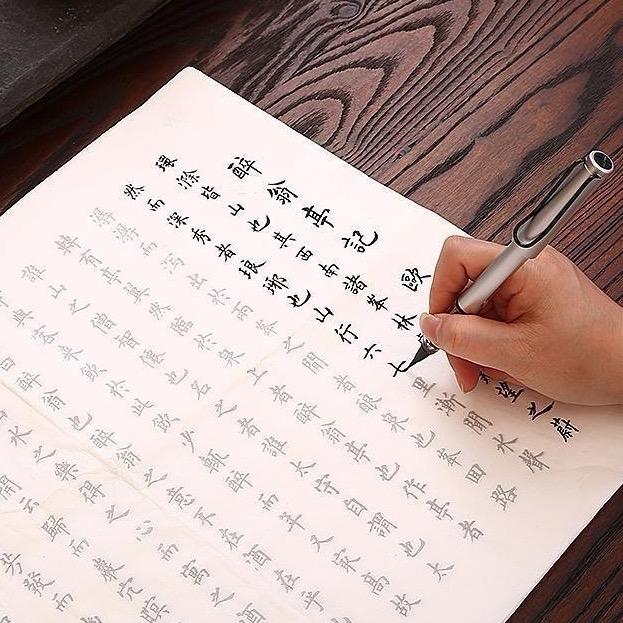 醉翁亭記 歐
環滁皆山也其西南諸峯林望之蔚
然而深秀者琅琊也山行六七里漸聞水聲
潺潺而瀉出於兩峯之間者釀泉也峯回路
轉有亭翼然臨於泉上者醉翁亭也作亭者
誰山之僧智僊也名之者誰太守自謂也太
與客來飲於此飲少輒醉而年又最高故
曰醉翁也醉翁之意不在酒在乎
山水之樂得之心而寓之酒
開云歸而巖穴暝
芬發而